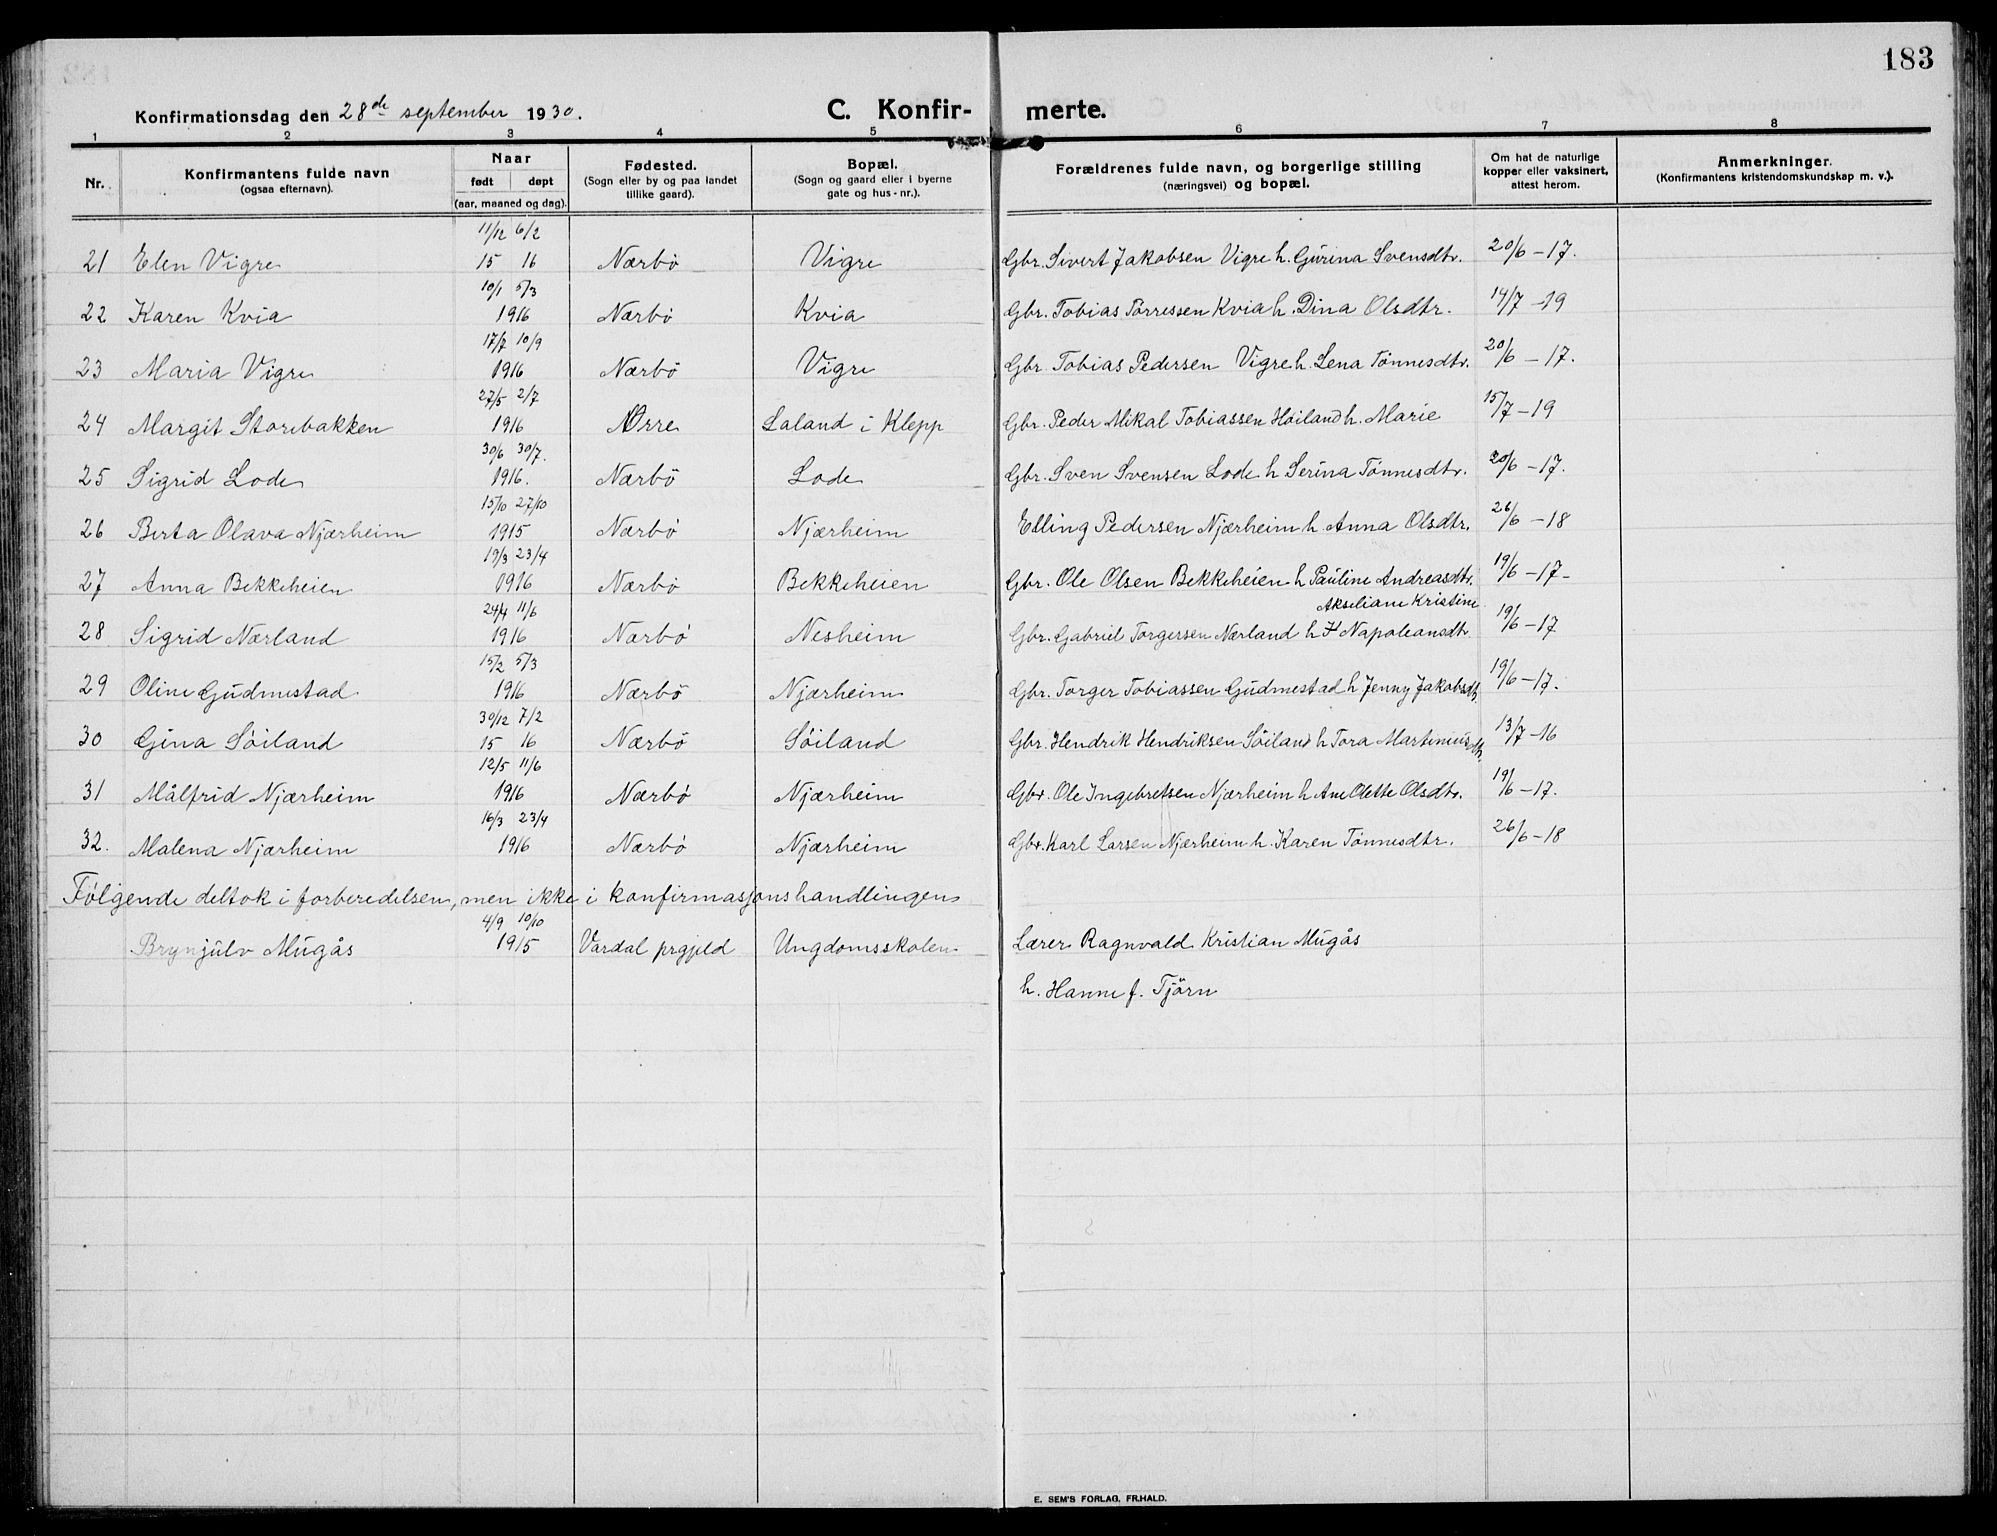 183
Konfirmationsdag den 28de september 1930.
C. Konfir- merte.
1 2 3 4 5 6 7 8
Nr.
Konfirmantens fulde navn
(ogsaa efternavn).
Naar
født døpt
(aar, maaned og dag).
Fødested.
(Sogn eller by og paa landet
tillike gaard).
Bopæl.
(Sogn og gaard eller i byerne
gate og hus-nr.).
Forældrenes fulde navn, og borgerlige stilling
(næringsvei) og bopæl.
Om hat de naturlige
kopper eller vaksinert,
attest herom.
Anmerkninger.
(Konfirmantens kristendomskundskap m. v.).
11/12 6/2
21 Elen Vigre 15 16 Nærbö Vigre Gbr. Sivert Jakobsen Vigre h. Gurina Svensdtr. 20/6 - 17.
10/1 5/3
22 Karen Kvia 1916 Nærbö Kvia Gbr. Tobias Törressen Kvia h. Dina Olsdtr. 14/7 - 19
17/7 10/9
23 Maria Vigre 1916 Nærbö Vigre Gbr. Tobias Pedersen Vigre h. Lena Tönnesdtr. 20/6 - 17.
27/5 2/7
24 Margit Storebakken 1916 Orre Laland i Klepp Gbr. Peder Mikal Tobiassen Höiland h. Marie 15/7 - 19
30/6 30/7.
25 Sigrid Lode 1916. Nærbö Lode Gbr. Sven Svensen Lode h Serina Tönnesdtr. 20/6 - 17.
15/10 27/10
26 Berta Olava Njærheim 1915 Nærbö Njærheim Elling Pedersen Njærheim h Anna Olsdtr. 26/6 - 18
19/3 23/4
27 Anna Bekkeheien 1916 Nærbö Bekkeheien Gbr. Ole Olsen Bekkeheien h Pauline Andreasdtr. 19/6 - 17-
24/4 11/6 Akseliane Kristine
28 Sigrid Nærland 1916 Nærbö Nesheim Gbr. Gabriel Torgersen Nærland h K Napoleansdtr. 19/6 - 17
15/2 5/3
29 Oline Gudmestad 1916 Nærbö Njærheim Gbr. Torger Tobiassen Gudmestad h Jenny Jakobsdtr. 19/6 - 17.
30/12 7/2
30 Gina Söiland 15 16 Nærbö Söiland Gbr. Hendrik Hendriksen Söiland h Tora Martiniusdtr. 13/7 - 16
12/5 11/6
31 Målfrid Njærheim 1916 Nærbö Njærheim Gbr. Ole Ingebretsen Njærheim h Ane Olette Olsdtr. 19/6 - 17.
16/3 23/4
32. Malena Njærheim 1916 Nærbö Njærheim Gbr. Karl Larsen Njærheim h. Karen Tönnesdtr. 26/6 - 18
Fölgende deltok i forberedelsen, men ikke i konfirmasjonshandlingen
4/9 10/10
Brynjulv Mugås 1915 Vardal prgjeld Ungdomsskolen. Lærer Ragnvald Kristian Mugås
h. Hanne f. Tjörn
E. SEM'S FORLAG, FR.HALD.